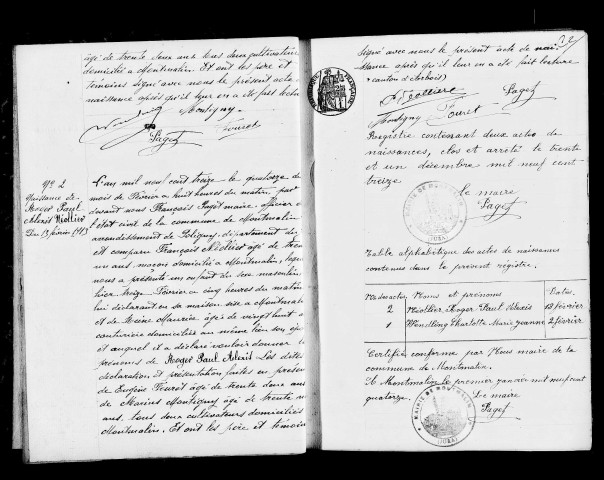 âgé de trente deux ans tous deux cultivateurs
domiciliés à Montmalin. Et ont les père et
témoins signé avec nous le présent acte de
naissance après qu'il leur en a été fait lecture
Montigny
Paget Touret
N° 2
Naissance de
Roger Paul
Alexis Niollier
Du 13 février 1913
L'an mil neuf cent treize le quatorze du
mois de Février à huit heures du matin par
devant nous François Paget maire, officier de
l'état civil de la commune de Montmalin
arrondissement de Poligny, département du
est comparu François Niollier âgé de trente
un ans maçon domicilié à Montmalin, lequel
nous a présenté un enfant du sexe masculin
hier treize Février à cinq heures du matin
lui déclarant en sa maison sise à Montmalin
et de Reine Maurice âgée de vingt huit ans
couturière domiciliée au même lieu son épouse
et auquel il a déclaré vouloir donner les
prénoms de Roger Paul Alexis Les dites
déclaration et présentation faites en présence
de Eugène Touret âgé de trente deux ans
de Marius Montigny âgé de trente
ans, tous deux cultivateurs domiciliés
Montmalin. Et ont les père et témoins
22
signé avec nous le présent acte de nais-
sance après qu'il leur en a été fait lecture
canton d'Arbois)
Paget
Montigny Touret
Registre contenant deux actes de
naissances, clos et arrêté le trente
et un décembre mil neuf cent
treize
Le maire
Paget
(JURA)
Table alphabétique des actes de naissances
contenus dans le présent régistre.
Nos des actes Noms et prénoms Dates
2 Niollier Roger Paul Alexis 13 février
1 Wendling Charlotte Marie Jeanne 2 février
Certifié conforme par Nous maire de la
commune de Montmalin.
A Montmalin le premier janvier mil neuf cent
quatorze. Le maire
Paget
(JURA)